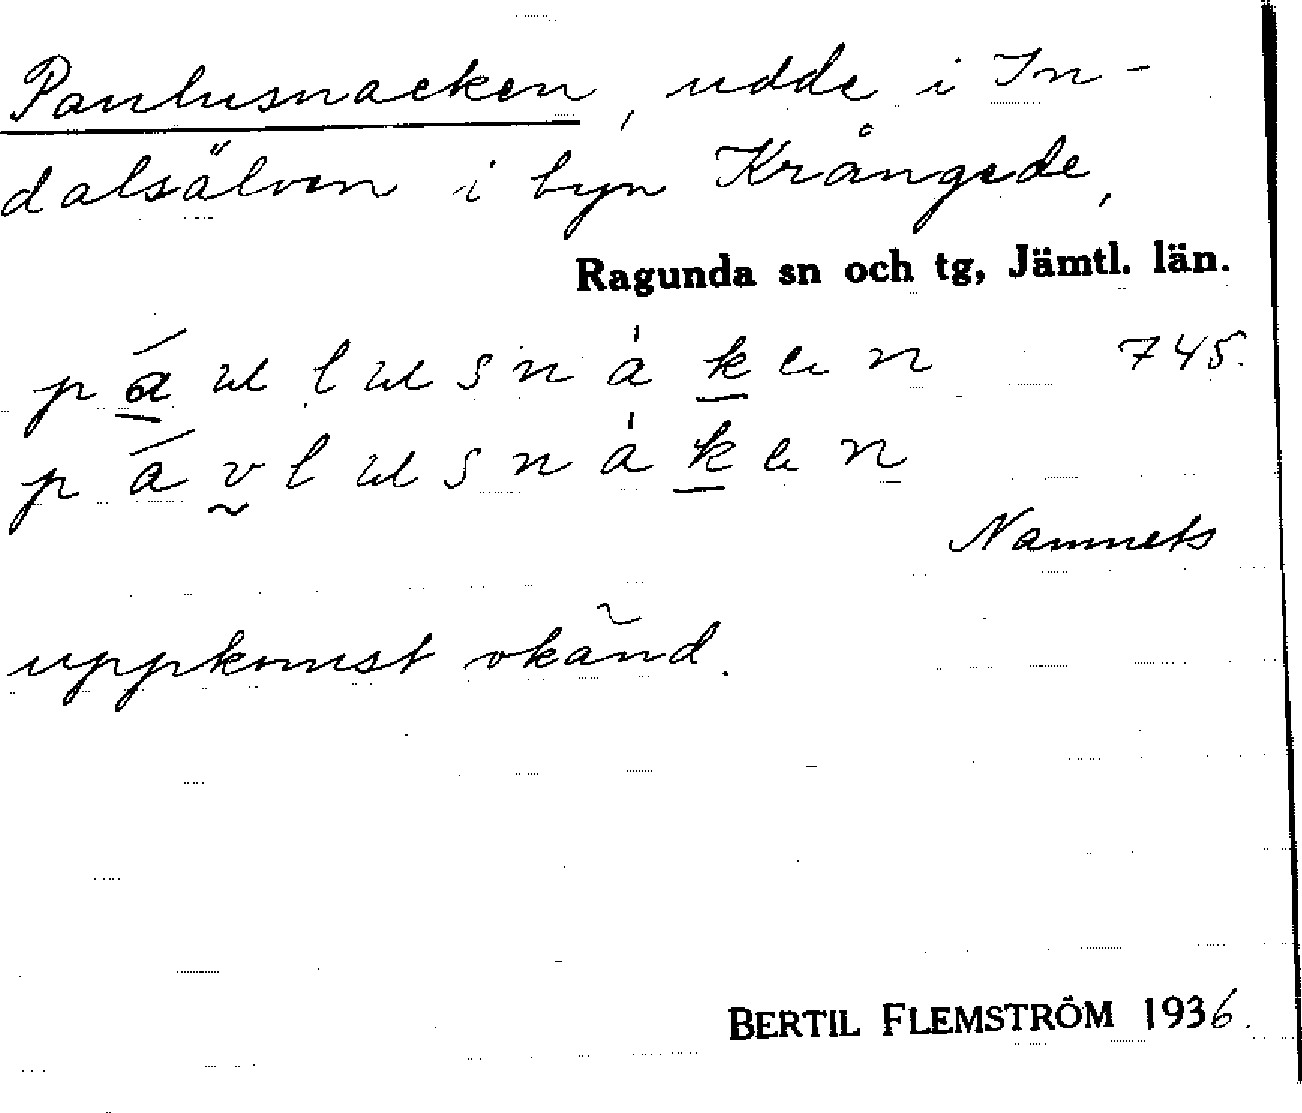 Paulusnacken, udde i In-
dalsälven i byn Krångede,
Ragunda sn och tg, Jämtl. län.
páulusnàken 745.
pávlusnàken
Namnets
uppkomst okänd.
BERTIL FLEMSTRÖM 1936.